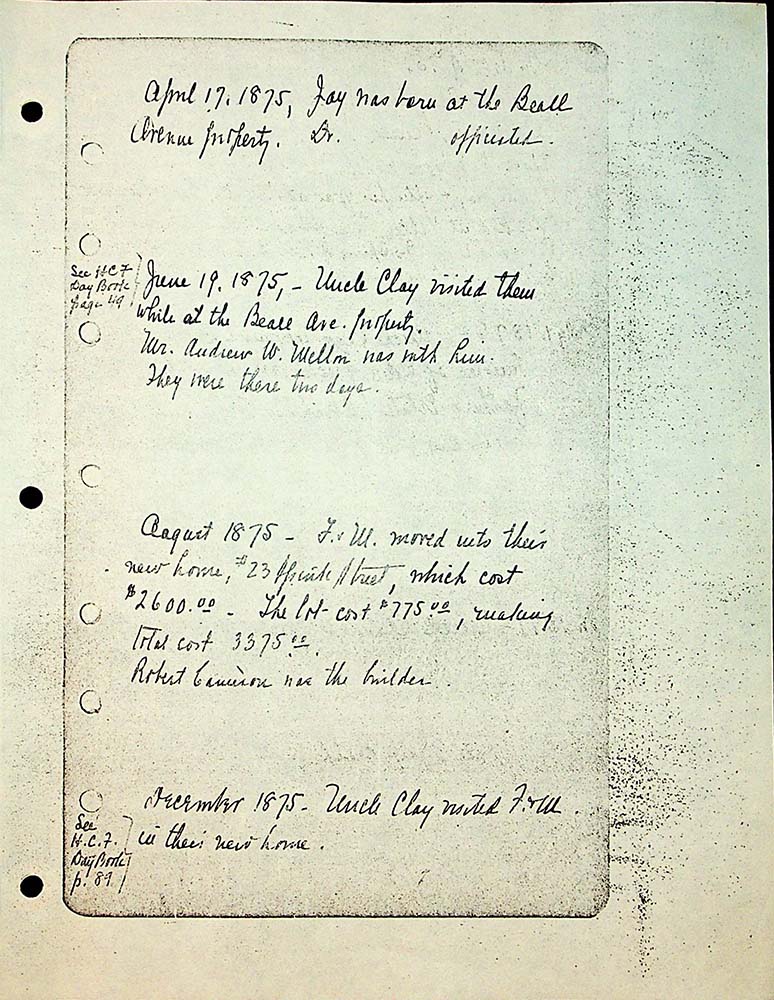 April 17. 1875, Jay was born at the Beall
Avenue property. Dr. officiated.
See H.C.F.
Day Book
page 49
June 19. 1875, - Uncle Clay visited them
while at the Beall Ave. property.
Mr. Andrew W. Mellon was with him.
They were there two days.
August 1875 - F. & M. moved into their
new home, #23 Street, which cost
$2600.00 - The lot cost $775.00, making
total cost 3375.00.
Robert Cameron was the builder.
December 1875 - Uncle Clay visited F. & M.
in their new home.
See
H.C.F.
Day Book
p. 89